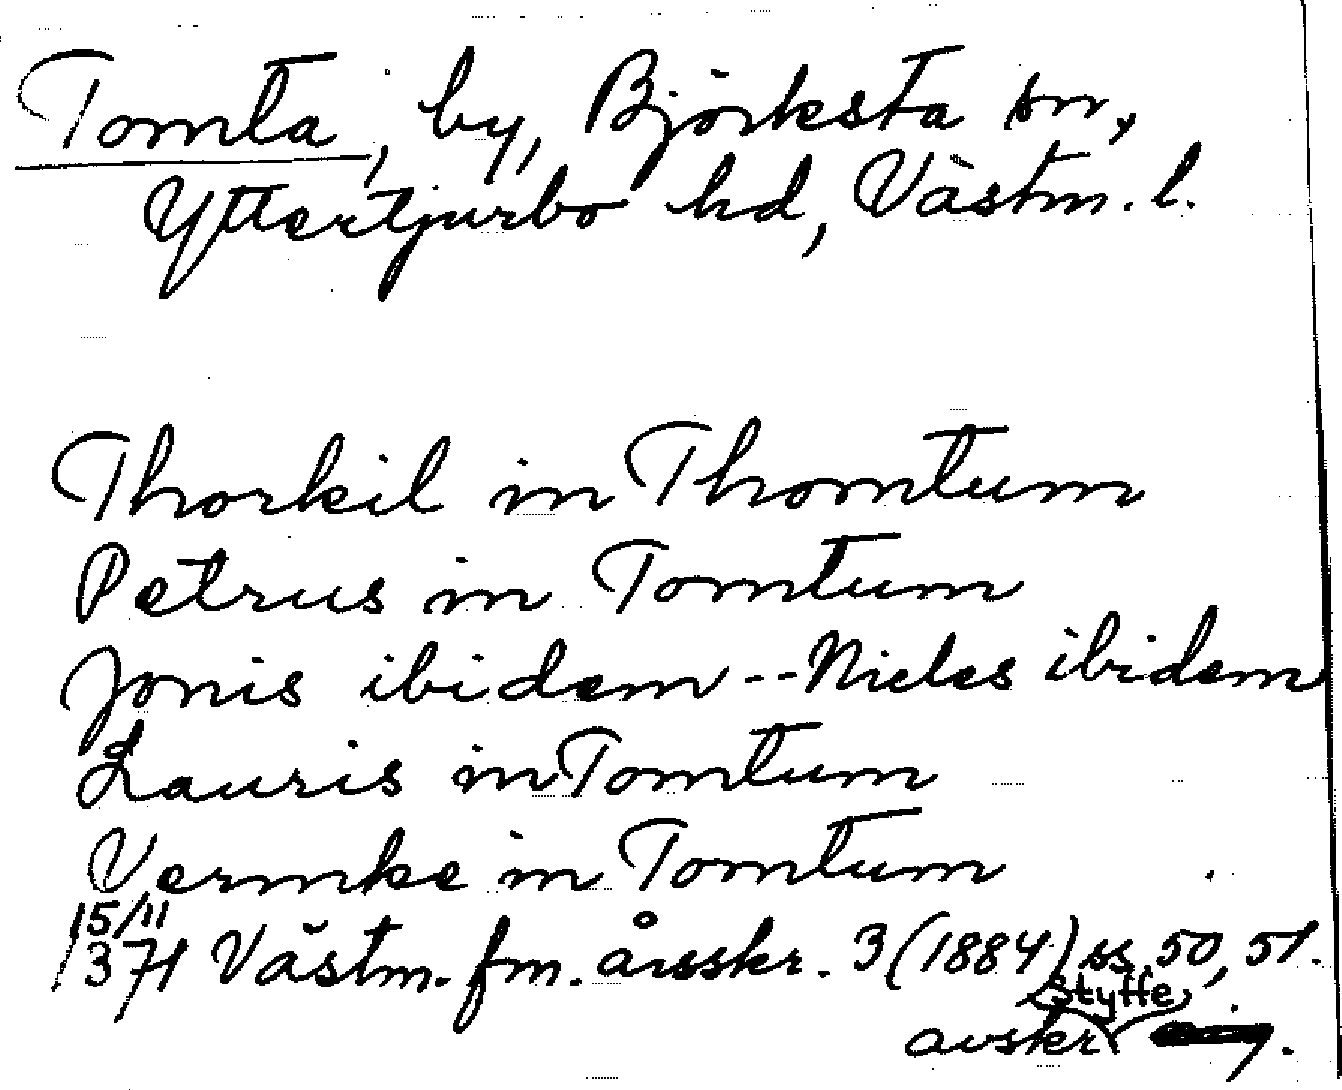 Tomta, by, Björksta sn,
Yttertjurbo hd, Västm. l.
Thorkil in Thomtum
Petrus in Tomtum
Jonis ibidem -- Nicles ibidem
Lauris in Tomtum
Vermke in Tomtum
15/11
1371 Västm. fm. årsskr. 3 (1884) ss 50, 51.
Styffe
avskr